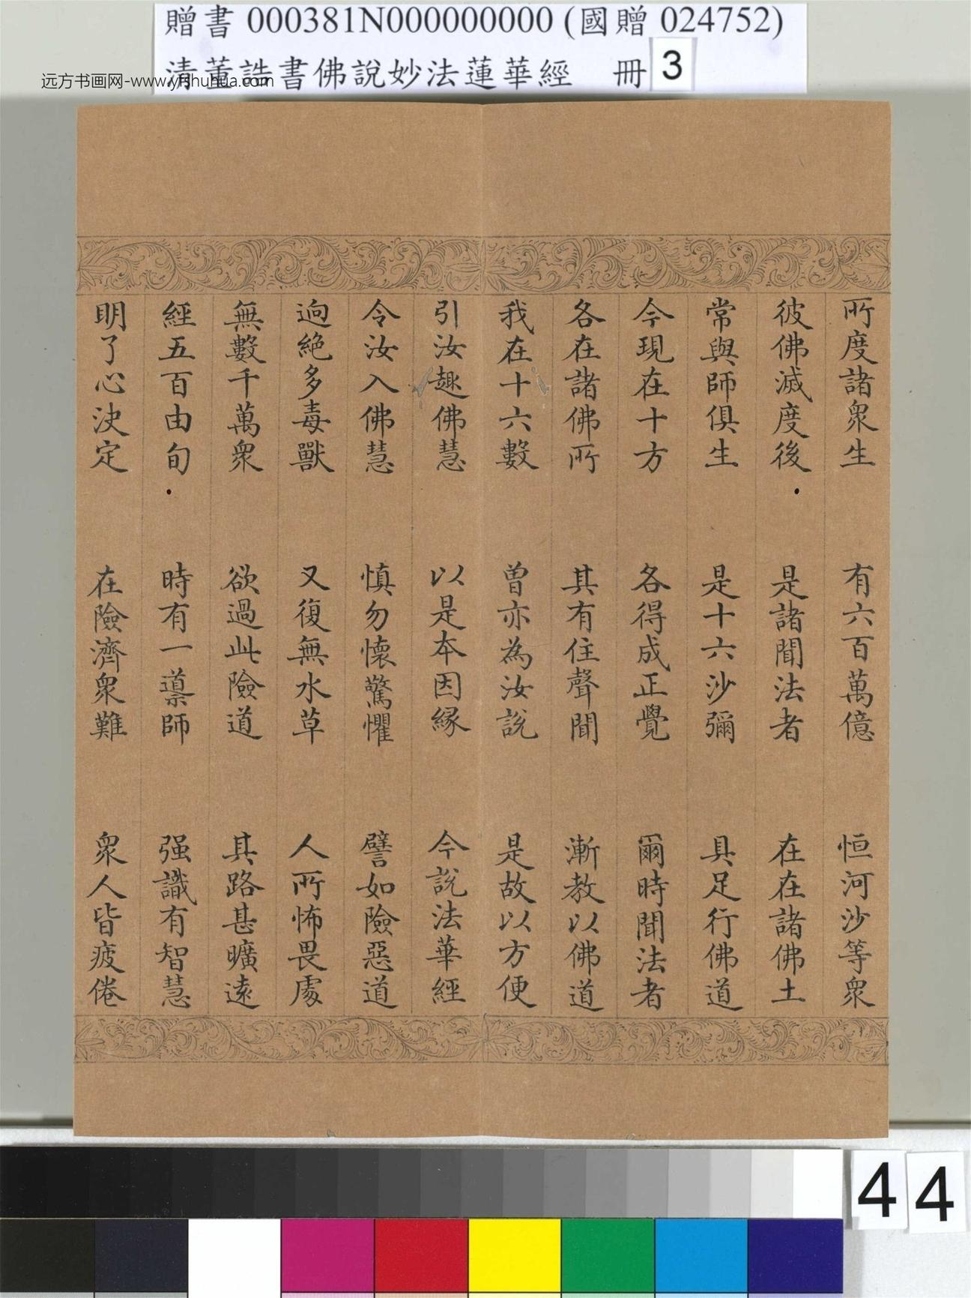 贈書 000381N000000000 (國贈 024752)
清董誥書佛說妙法蓮華經 冊 3
远方书画网-www.yfshuhua.com
所度諸衆生 有六百萬億 恒河沙等衆
彼佛滅度後 是諸聞法者 在在諸佛土
常與師俱生 是十六沙彌 具足行佛道
今現在十方 各得成正覺 爾時聞法者
各在諸佛所 其有住聲聞 漸教以佛道
我在十六數 曾亦為汝說 是故以方便
引汝趣佛慧 以是本因緣 今說法華經
令汝入佛慧 慎勿懷驚懼 譬如險惡道
逈絕多毒獸 又復無水草 人所怖畏處
無數千萬衆 欲過此險道 其路甚曠遠
經五百由旬 時有一導師 强識有智慧
明了心決定 在險濟衆難 衆人皆疲倦
44